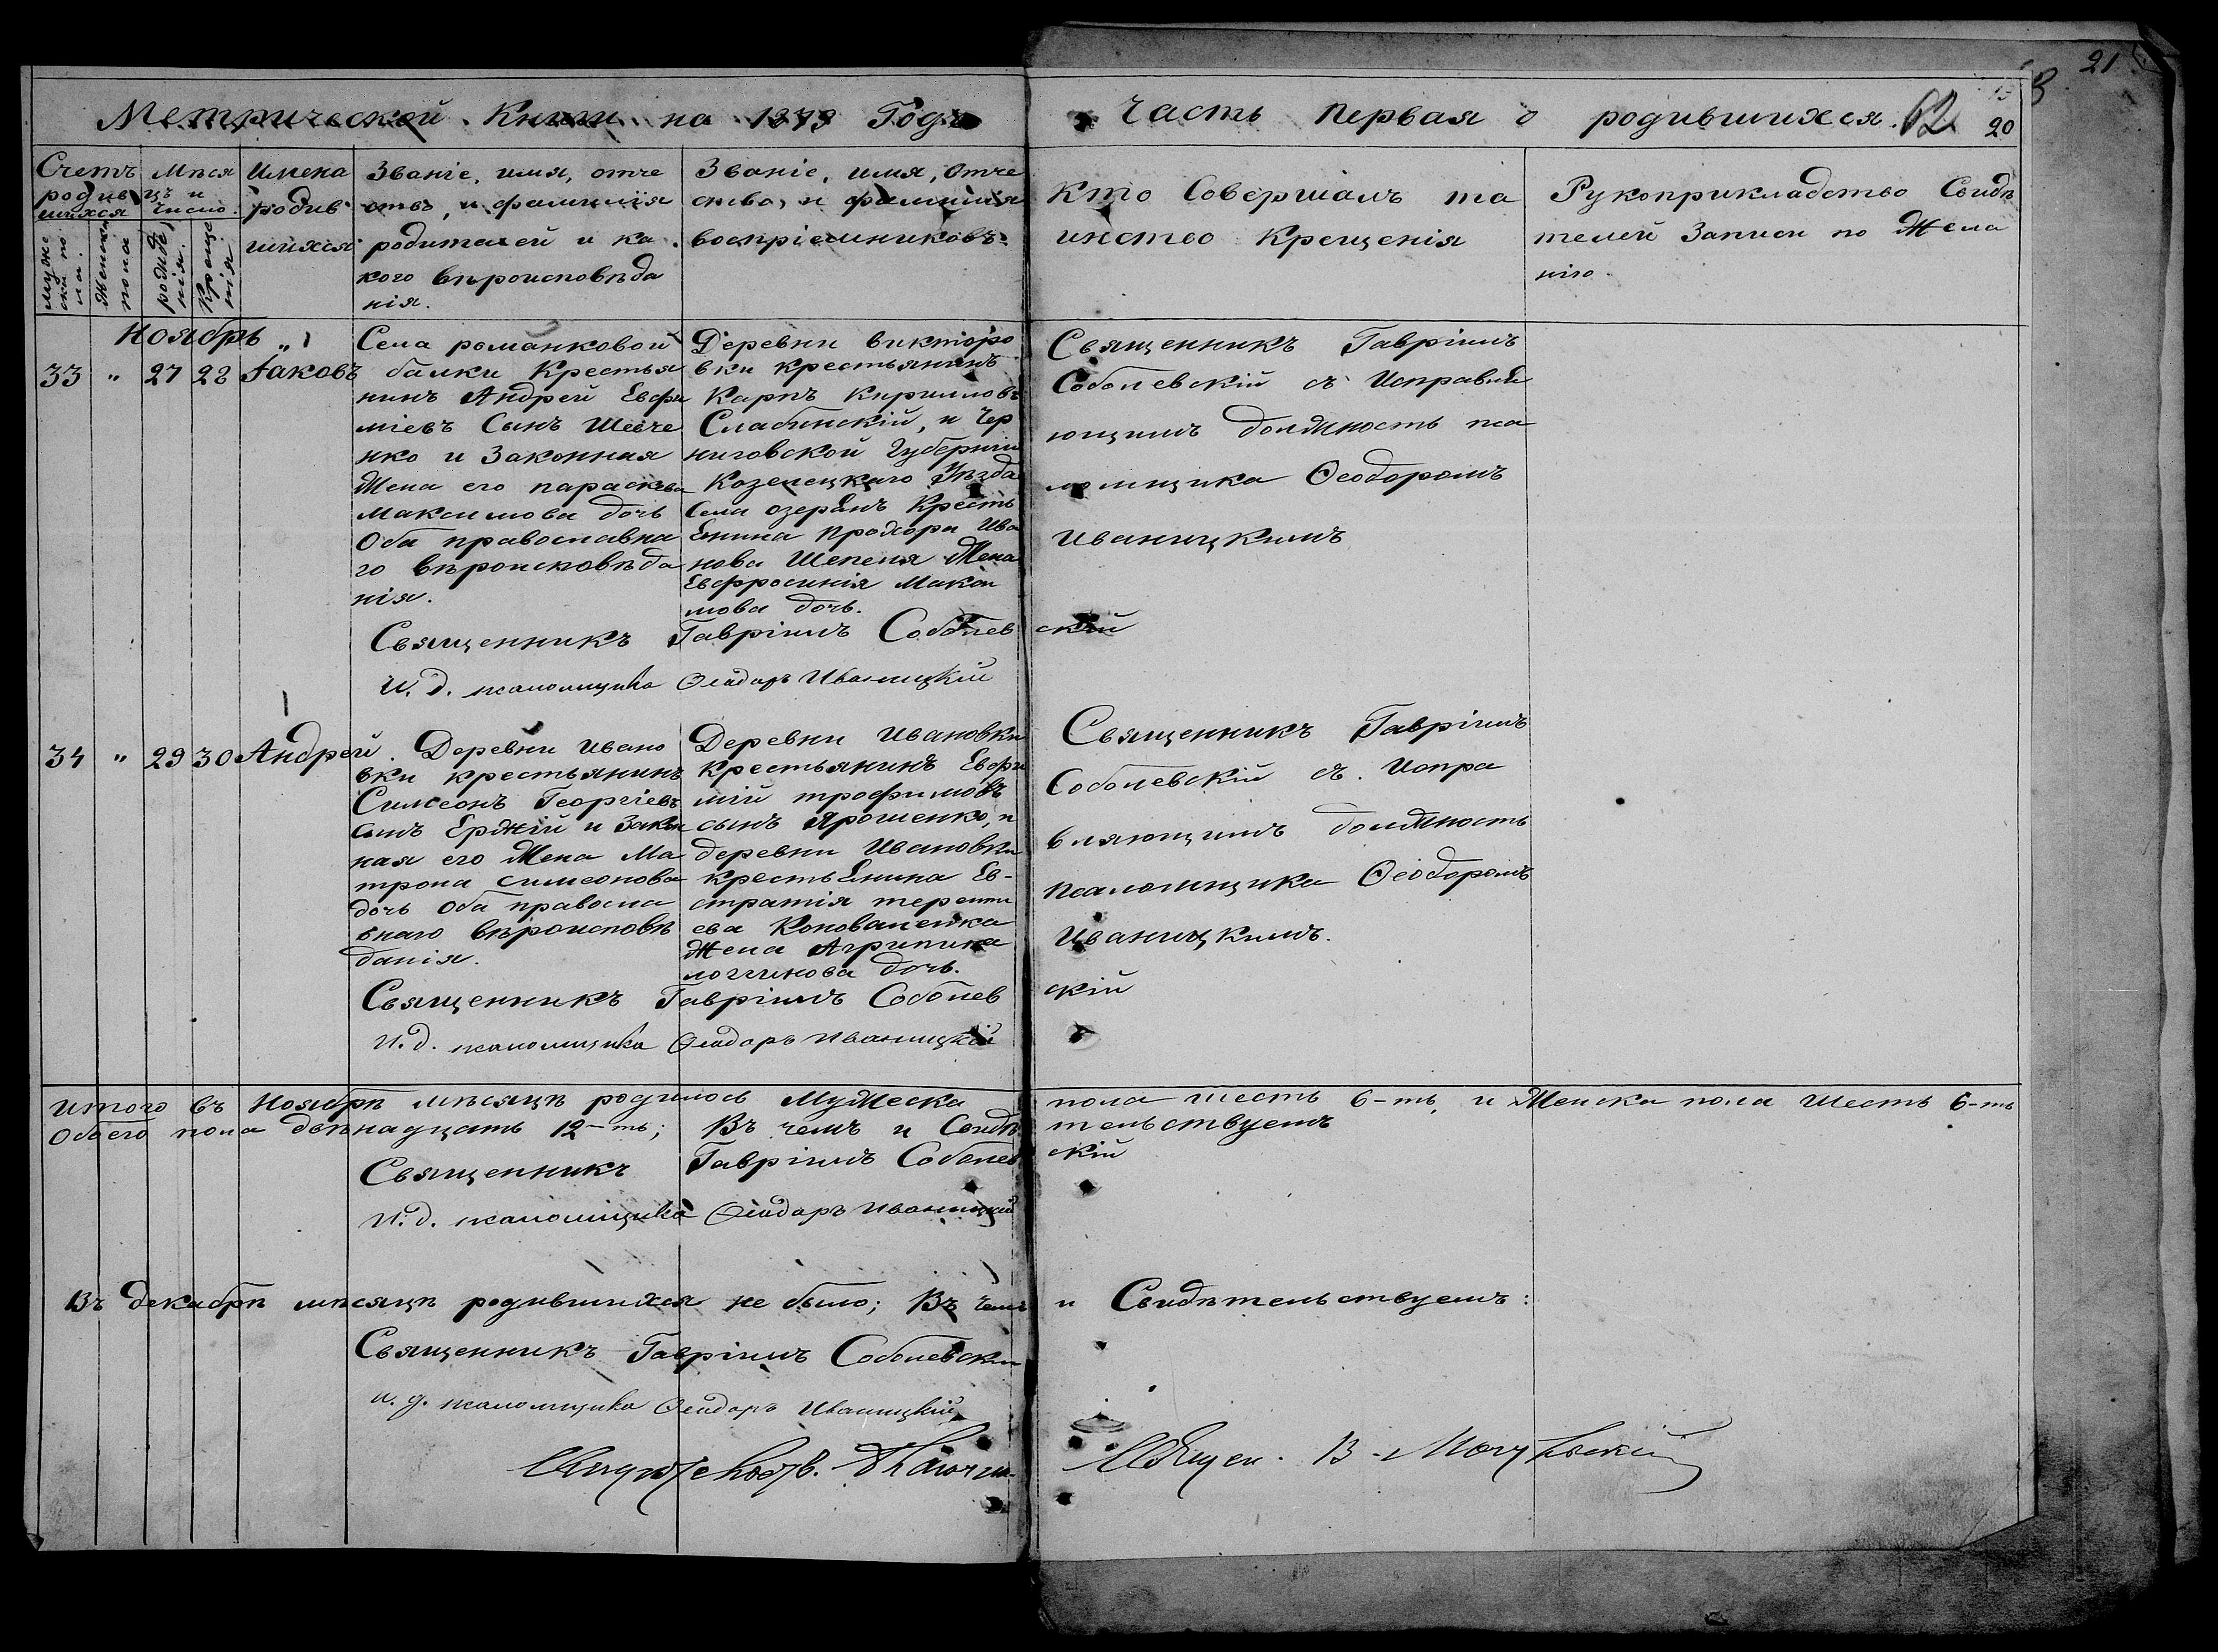 21
Метрической Книги на 1873 Годъ
Часть Первая о родившихся. 62 20
Счетъ родив шихся
Мѣся цъ и число.
Имена родив шихся
Званіе, имя, отче ство, и фамилія родителей и ка кого вѣроисповѣда нія.
Званіе, имя, отче ство, и фамилія воспріемниковъ.
Кто Совершалъ та инство Крещенія
Рукоприкладство Свидѣ телей Записи по Жела нію.
муже ска по ла.
Женска пола
рожде нія.
Креще нія.
Ноябрь
33 " 27 28 Іаковъ
Села романковой
балки Крестья
нинъ Андрей Евфи
міевъ Сынъ Шевче
нко и Законная
Жена его параскева
Максимова дочь
Оба православна
го вѣроисповѣда
нія.
Деревни викторо
вки крестьянинъ
Карпъ Кирилловъ
Слабинскій, и Чер
ниговской Губерніи
Козелецкаго Уѣзда
Села озерянъ Кресть
Енина Прохора Ива
нова Шепеля Жена
Евфросинія Макси
мова дочь.
Священникъ Гавріилъ
Соболевскій съ Исправля
ющимъ должность пса
ломщика Ѳеодоромъ
Иваницкимъ
Священникъ Гавріилъ Соболев скій
И. д. псаломщика Ѳеодоръ Иваницкій
34 " 29 30 Андрей
Деревни Ивано
вки крестьянинъ
Симеонъ Георгіевъ
сынъ Ержій и Закон
ная его Жена Ма
трона симеонова
дочь Оба правосла
внаго вѣроисповѣ
данія.
Деревни Ивановки
Крестьянинъ Евфи
мій трофимовъ
сынъ Ярошенко, и
деревни Ивановки
крестьЕнина Ев-
стратія теренти
ева Коноваленка
Жена Агрипина
логгинова дочь.
Священникъ Гавріилъ
Соболевскій съ. Испра
вляющимъ должность
псаломщика Ѳеодоромъ
Иваницкимъ.
Священникъ Гавріилъ Соболев скій
И. д. псаломщика Ѳеодоръ Иваницкій
Итого въ Ноябрѣ мѣсяцѣ родилось Мужеска пола шесть 6-ть, и Женска пола шесть 6-ть
Обоего пола двѣнадцать 12-ть; Въ чемъ и Свидѣ тельствуемъ
Священникъ Гавріилъ Соболев скій
И. д. псаломщика Ѳеодоръ Иваницкій
Въ декабрѣ мѣсяцѣ родившихся не было; Въ чемъ и Свидѣтельствуемъ:
Священникъ Гавріилъ Соболевскій
и. д. псаломщика Ѳеодоръ Иваницкій
Священ. В.